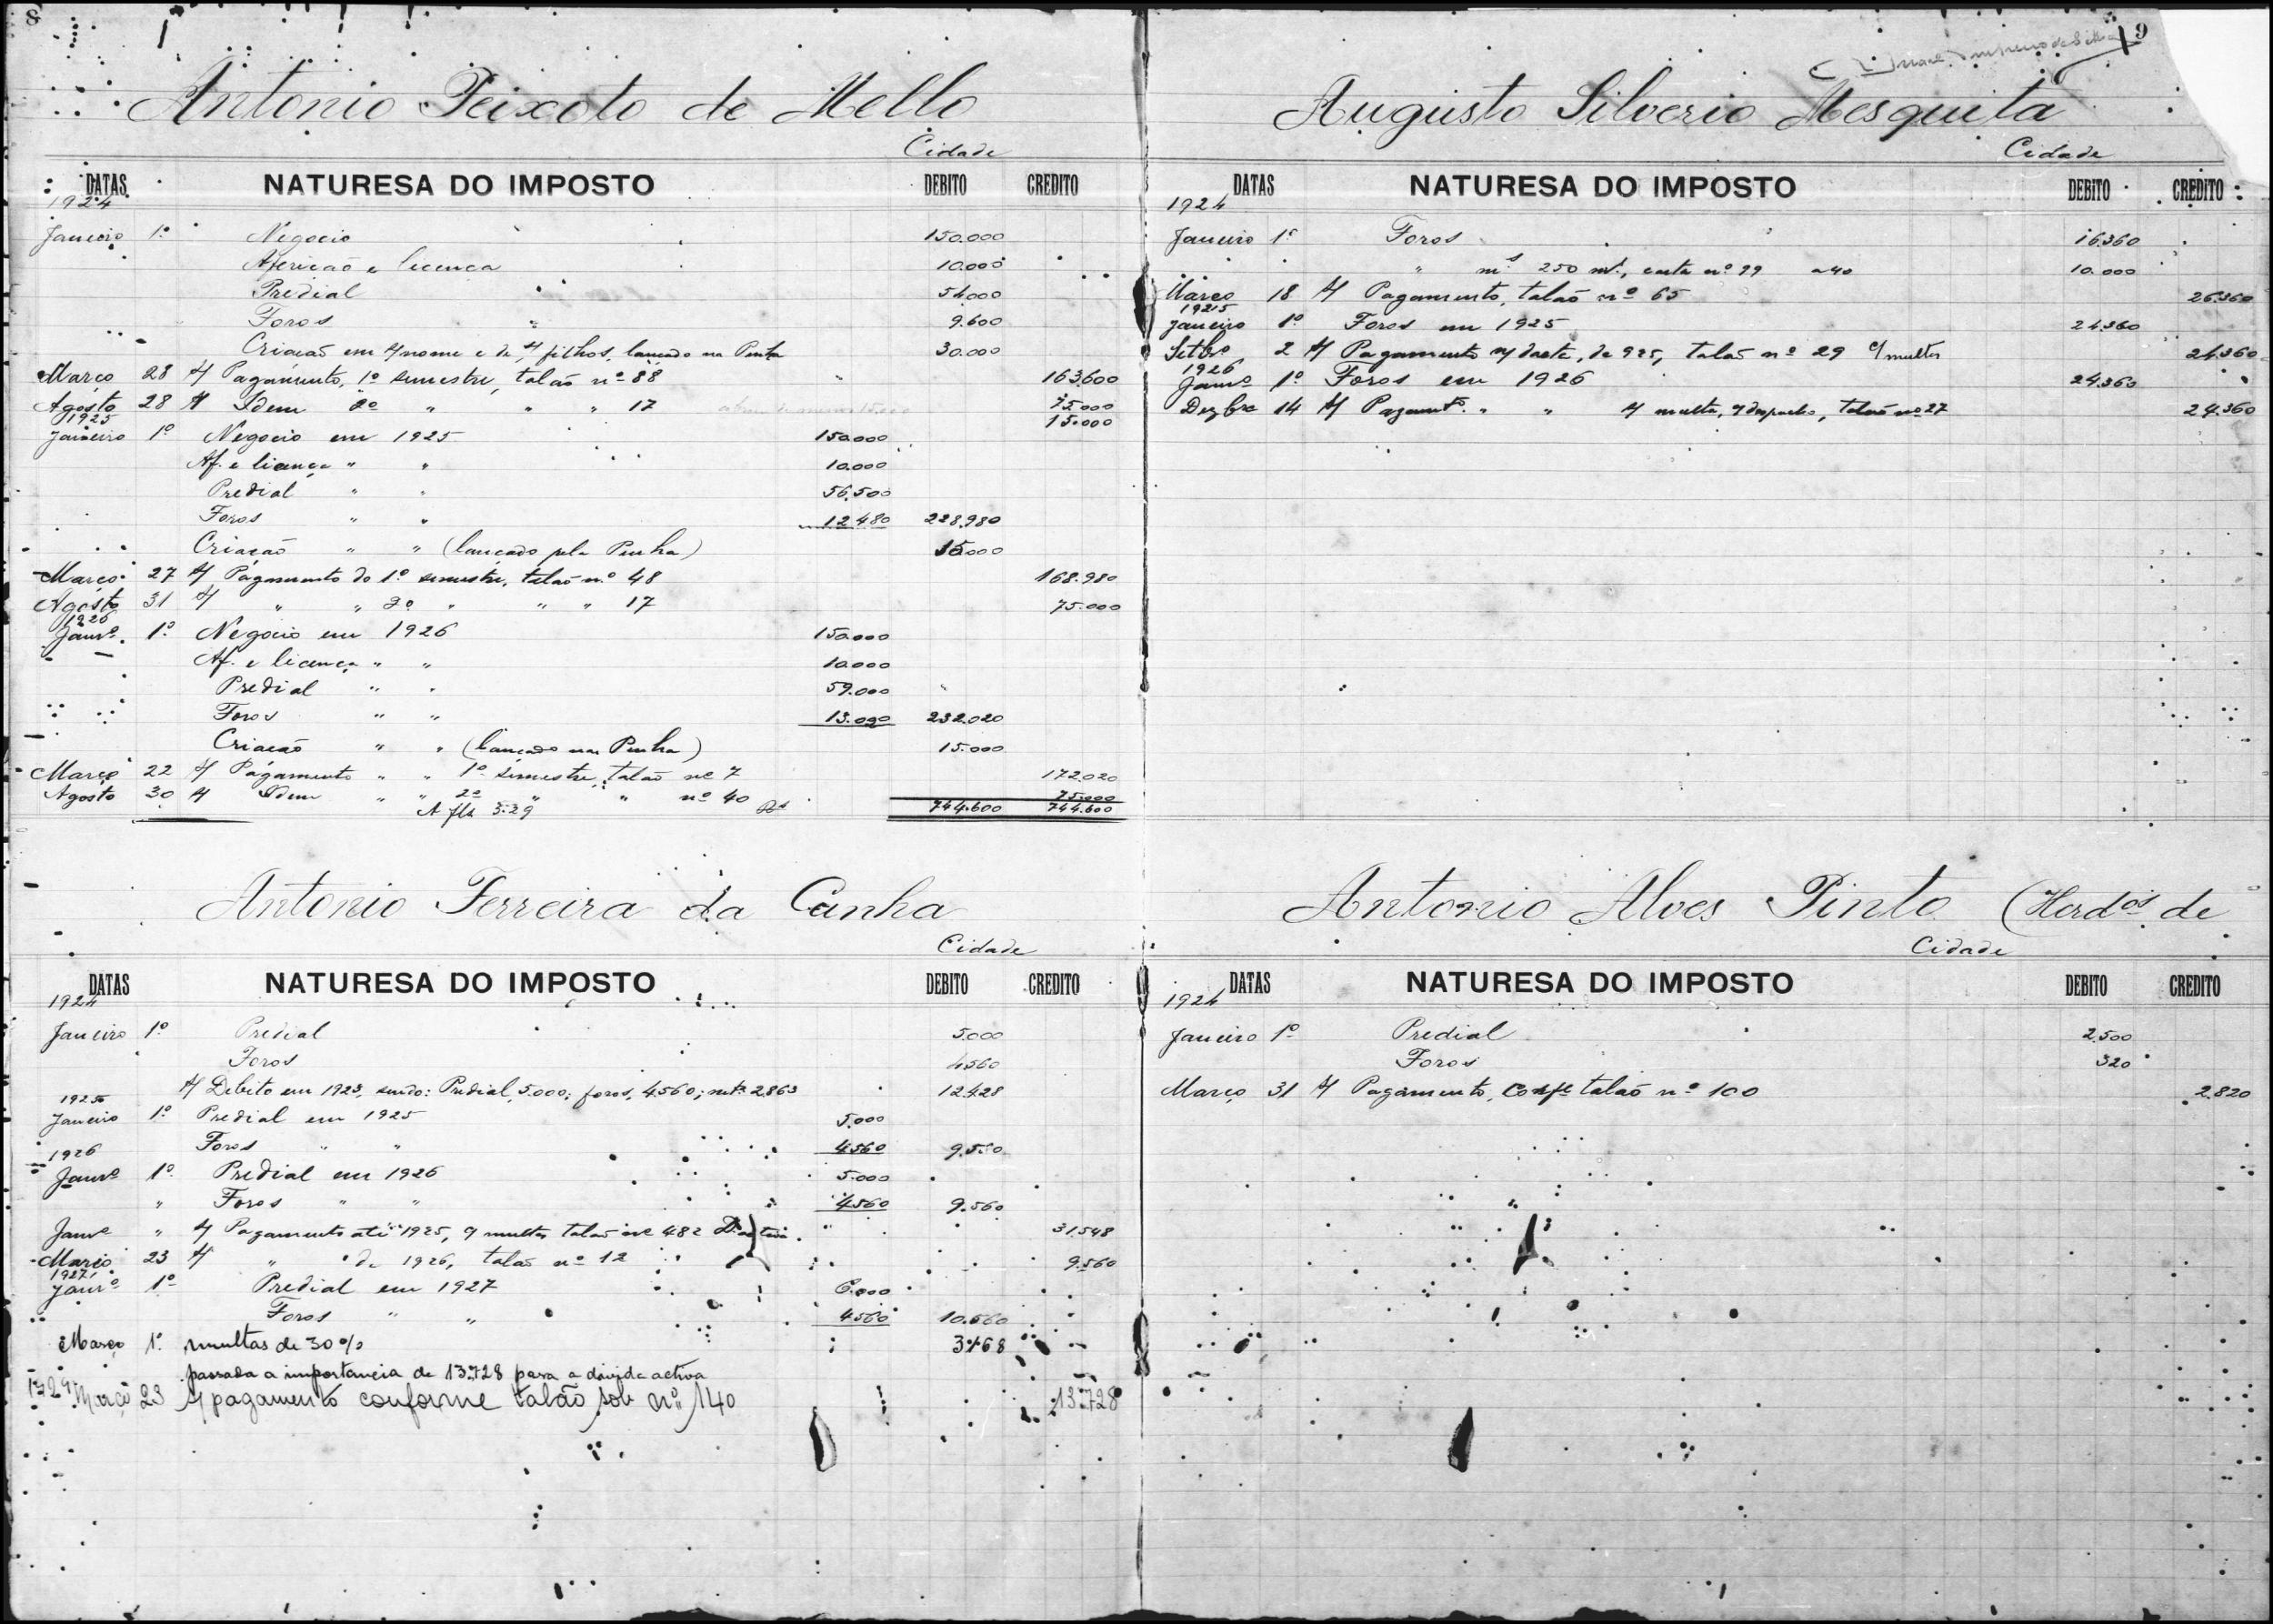 8
Antonio Peixoto de Mello
Cidade
DATAS NATURESA DO IMPOSTO DEBITO CREDITO
1924
Janeiro 1º Negocio 150.000
Afericão e licença 10.000
Predial 54.000
Foros 9.600
Criação em s/nome e de s/ filhos, lançado na Penha 30.000
Março 28 s/ Pagamento, 1º semestre, talão nº 88 163.600
Agosto 28 s/ Idem 2º " " " 17 75.000
15.000
1925
Janeiro 1º Negocio em 1925 150.000
Af. e licença " " 10.000
Predial " " 56.500
Foros " " 12.480 228.980
Criação " " (lançado pela Penha) 15.000
Março 27 s/ Pagamento do 1º semestre, talão nº 48 168.980
Agosto 31 s/ " " 2º " " " 17 75.000
1926
Janrº 1º Negocio em 1926 150.000
Af. e licença " " 10.000
Predial " " 59.000
Foros " " 13.020 232.020
Criação " " (lançado na Penha) 15.000
Março 22 s/ Pagamento " " 1º semestre, talão nº 7 172.020
Agosto 30 s/ Idem " " 2º " " nº 40 75.000
A fls 329 Rs 744.600 744.600
Antonio Ferreira da Cunha
Cidade
DATAS NATURESA DO IMPOSTO DEBITO CREDITO
1924
Janeiro 1º Predial 5.000
Foros 4.560
s/ Debito em 1923, sendo: Predial, 5.000; foros, 4.560; mta 2.863 12.428
1925
Janeiro 1º Predial em 1925 5.000
Foros " " 4.560 9.560
1926
Janrº 1º Predial em 1926 5.000
" Foros " " 4.560 9.560
Janrº " s/ Pagamento até 1925, c/ multas talão nº 482 31.548
Março 23 s/ " de 1926, talão nº 12 9.560
1927
Janrº 1º Predial em 1927 6.000
Foros " " 4.560 10.560
Março 1º multas de 30% 3.168
passada a importancia de 13.728 para a divida activa
1929 Março 23 s/ pagamento conforme talão sob nº 140 13.728
9
Augusto Silverio Mesquita
Cidade
DATAS NATURESA DO IMPOSTO DEBITO CREDITO
1924
Janeiro 1º Foros 16.360
" ms 250 mt, carta nº 99 a 40 10.000
Março 18 s/ Pagamento, talão nº 65 26.360
1925
Janeiro 1º Foros em 1925 24.360
Setbrº 2 s/ Pagamento n/ data, de 925, talão nº 29 c/ multa 24.360
1926
Janrº 1º Foros em 1926 24.360
Dezbrº 14 s/ Pagamtº " " s/ multa, c/ despacho, talão nº 27 24.360
Antonio Alves Pinto (Herdos de
Cidade
DATAS NATURESA DO IMPOSTO DEBITO CREDITO
1924
Janeiro 1º Predial 2.500
Foros 320
Março 31 s/ Pagamento, confe talão nº 100 2.820